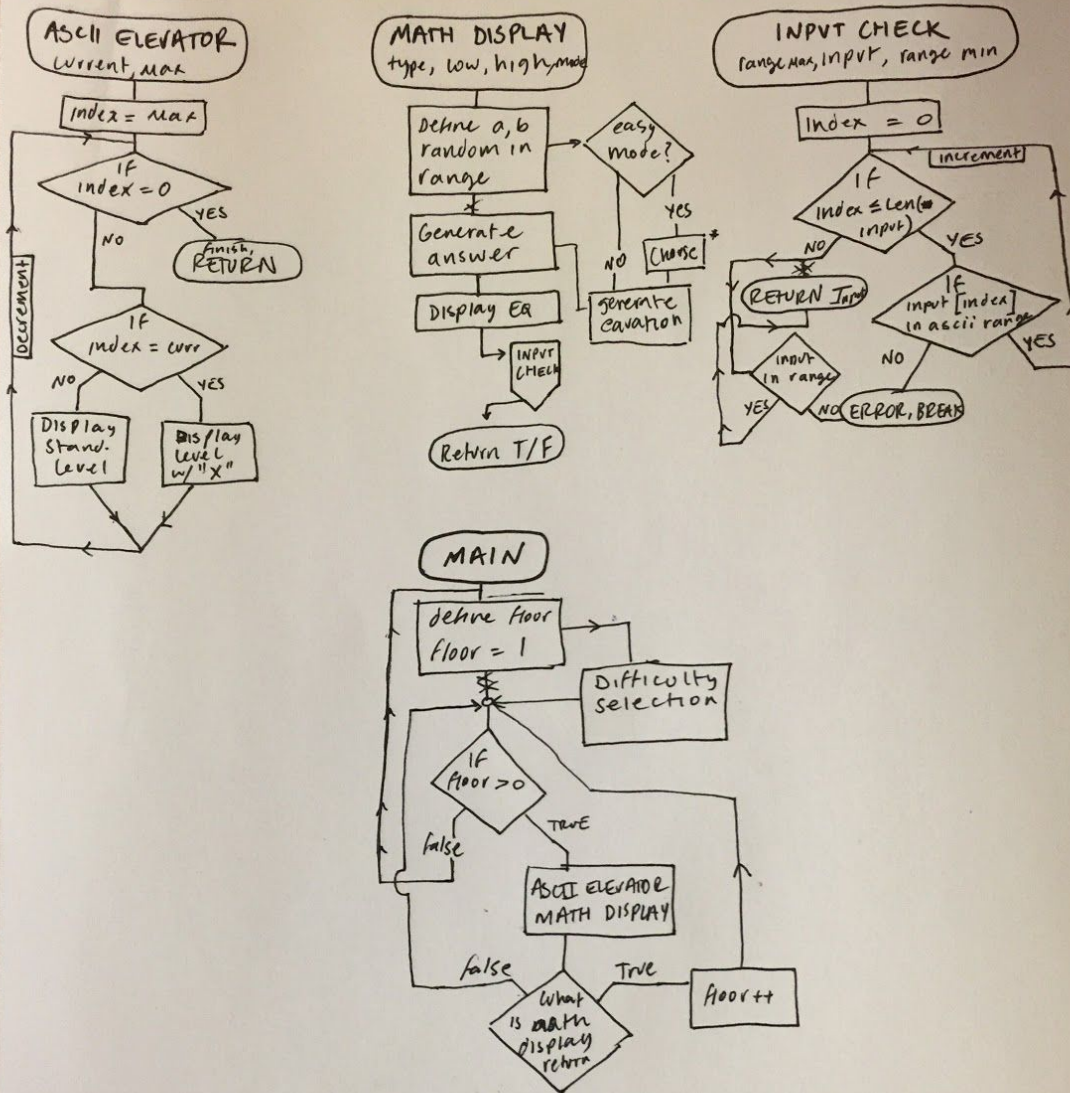 ASCII ELEVATOR
current, max
Index = Max
IF
index = 0
YES
finish,
RETURN
NO
Decrement
IF
index = curr
NO
YES
Display
Stand.
Level
Display
Level
w/ "X"
MATH DISPLAY
type, low, high, mode
Define a, b
random in
range
easy
mode?
yes
NO
Choose*
generate
eavation
Generate
answer
Display EQ
INPUT
CHECK
Return T/F
INPUT CHECK
range Max, input, range min
Index = 0
increment
IF
Index ≤ Len(
input)
NO
YES
RETURN Input
IF
input [index]
in ascii range
NO
YES
input
in range
YES
NO
ERROR, BREAK
MAIN
define floor
floor = 1
Difficulty
selection
IF
floor > 0
TRUE
false
ASCII ELEVATOR
MATH DISPLAY
false
True
What
is math
display
return
floor++